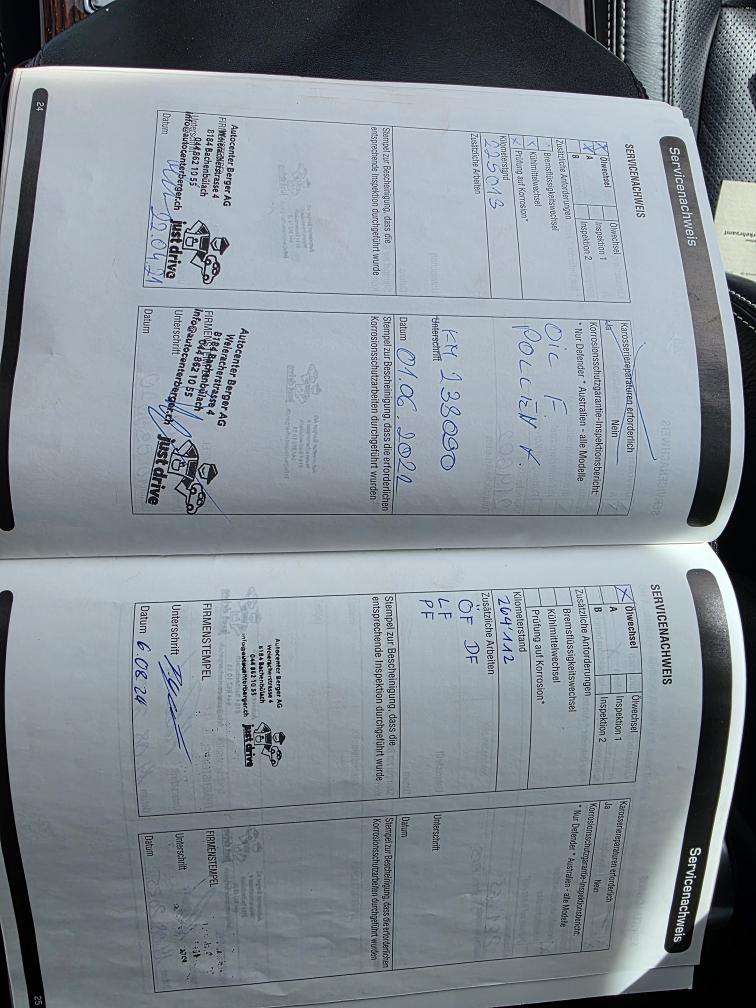 Servicenachweis
SERVICENACHWEIS
Ölwechsel
Ölwechsel
X A
Inspektion 1
B
Inspektion 2
Zusätzliche Anforderungen
Bremsflüssigkeitswechsel
X Kühlmittelwechsel
X Prüfung auf Korrosion*
Kilometerstand
225013
Zusätzliche Arbeiten
Stempel zur Bescheinigung, dass die
entsprechende Inspektion durchgeführt wurde
Autocenter Berger AG
Weieracherstrasse 4
8184 Bachenbülach
044 862 10 55
info@autocenterberger.ch
just drive
Datum
22.04.21
Karosseriereparaturen erforderlich
Ja
Nein
Korrosionsschutzgarantie-Inspektionsbericht:
* Nur Defender * Australien - alle Modelle
OIL F
POLLEN F.
KM 238090
Unterschrift
Datum 01.06.2021
Stempel zur Bescheinigung, dass die erforderlichen
Korrosionsschutzarbeiten durchgeführt wurden
Autocenter Berger AG
Weieracherstrasse 4
8184 Bachenbülach
044 862 10 55
info@autocenterberger.ch
just drive
Unterschrift
Datum
24
Servicenachweis
SERVICENACHWEIS
X Ölwechsel
Ölwechsel
A
Inspektion 1
B
Inspektion 2
Zusätzliche Anforderungen
Bremsflüssigkeitswechsel
Kühlmittelwechsel
Prüfung auf Korrosion*
Kilometerstand
264'112
Zusätzliche Arbeiten
ÖF DF
LF
PF
Stempel zur Bescheinigung, dass die
entsprechende Inspektion durchgeführt wurde
Autocenter Berger AG
Weieracherstrasse 4
8184 Bachenbülach
044 862 10 55
info@autocenterberger.ch
just drive
FIRMENSTEMPEL
Unterschrift
Datum 6.08.24
Karosseriereparaturen erforderlich
Ja
Nein
Korrosionsschutzgarantie-Inspektionsbericht:
* Nur Defender * Australien - alle Modelle
Unterschrift
Datum
Stempel zur Bescheinigung, dass die erforderlichen
Korrosionsschutzarbeiten durchgeführt wurden
FIRMENSTEMPEL
Unterschrift
Datum
25